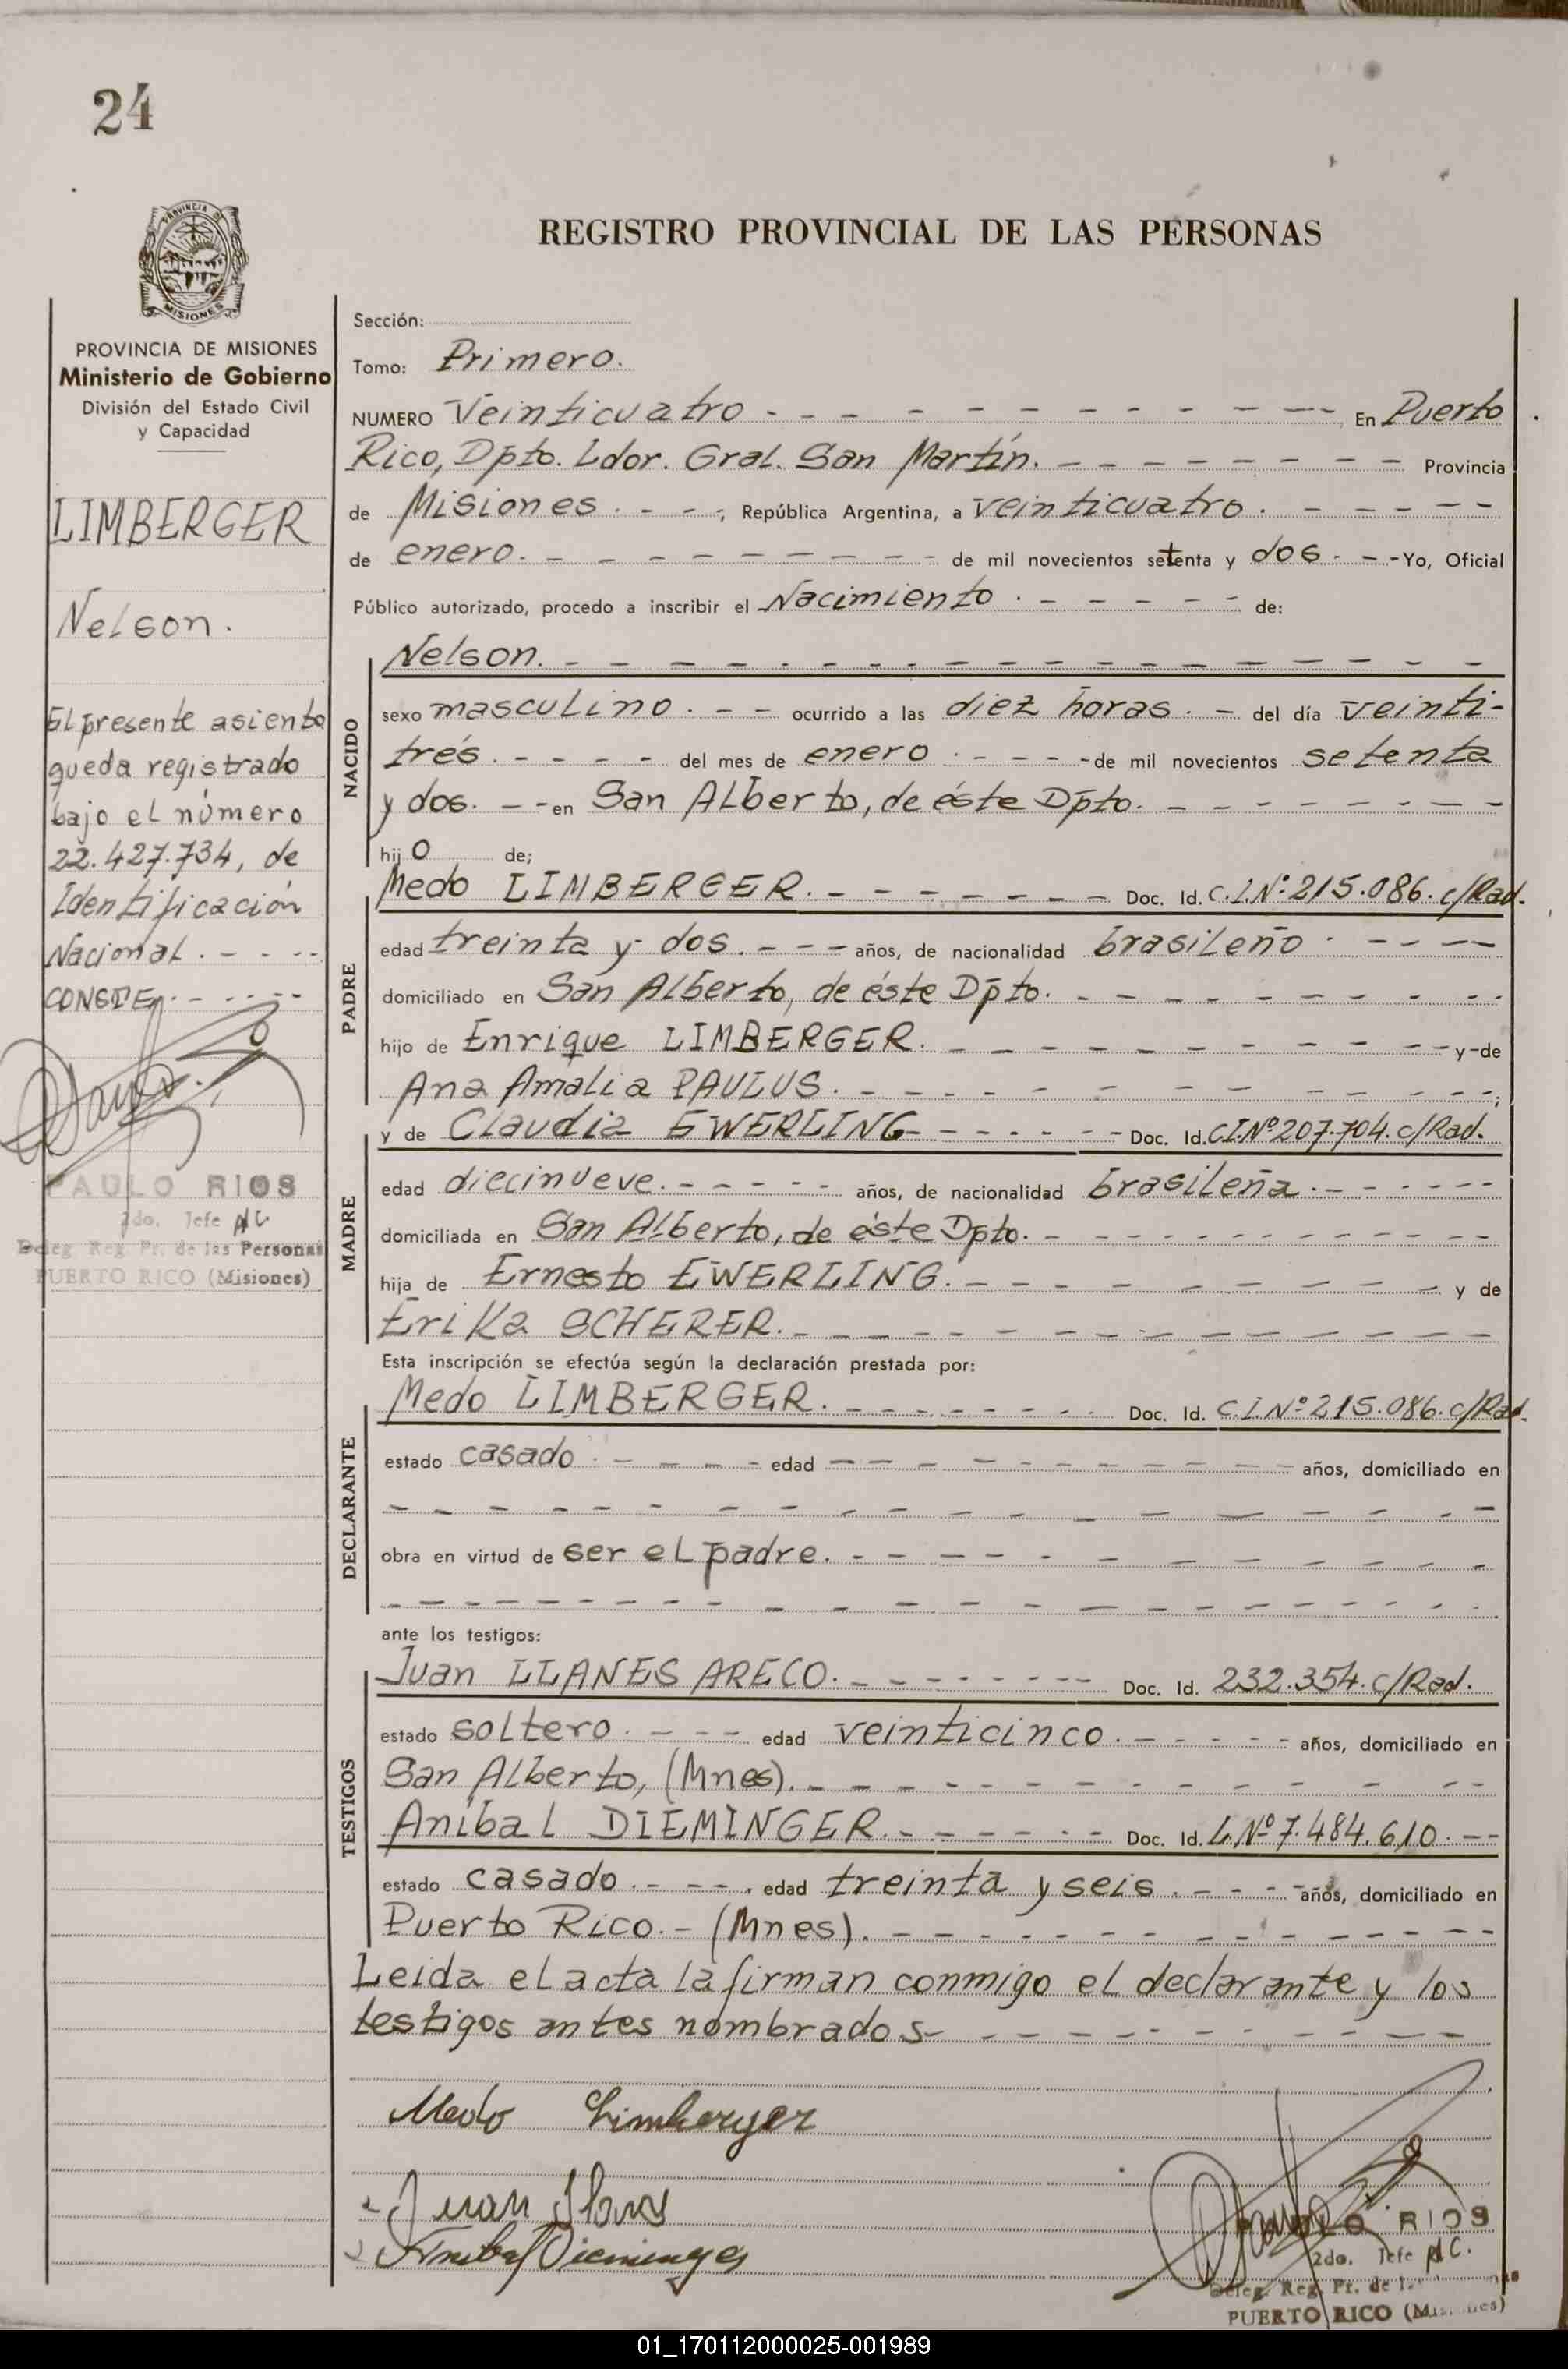 24
PROVINCIA DE
MISIONES
REGISTRO PROVINCIAL DE LAS PERSONAS
PROVINCIA DE MISIONES
Ministerio de Gobierno
División del Estado Civil
y Capacidad
LIMBERGER
Nelson.
El presente asiento
queda registrado
bajo el número
22.427.734, de
Identificación
Nacional. - - --
CONSTE. - - - -
PAULO RIOS
2do. Jefe A/C
Deleg Reg Pr. de las Personas
PUERTO RICO (Misiones)
Sección:
Tomo: Primero.
NUMERO Veinticuatro - - - - - - - - - - - En Puerto
Rico, Dpto. Ldor. Gral. San Martín. - - - - - - - - Provincia
de Misiones. - - -, República Argentina, a veinticuatro. - - - - -
de enero. - - - - - - - - - - de mil novecientos setenta y dos - - - Yo, Oficial
Público autorizado, procedo a inscribir el Nacimiento. - - - - - de:
NACIDO
Nelson. - - - - - - - - - - - - - - - -
sexo masculino. - - ocurrido a las diez horas. - del día veinti-
trés. - - - - del mes de enero. - - - - de mil novecientos setenta
y dos. - - en San Alberto, de éste Dpto. - - - - - - - -
hijo de;
PADRE
Medo LIMBERGER. - - - - - - Doc. Id. C.I.Nº 215.086. c/Rad.
edad treinta y dos. - - - años, de nacionalidad brasileño. - - - -
domiciliado en San Alberto, de éste Dpto. - - - - - - - - -
hijo de Enrique LIMBERGER. - - - - - - - - - - y de
Ana Amalia PAULUS. - - - - - - - - - - - - ;
MADRE
y de Claudia EWERLING - - - - - - - Doc. Id. C.I.Nº 207.704. c/Rad.
edad diecinueve. - - - - - años, de nacionalidad brasileña. - - - - - -
domiciliada en San Alberto, de éste Dpto. - - - - - - - - - -
hija de Ernesto EWERLING. - - - - - - - - - y de
Erika SCHERER. - - - - - - - - - - - - -
Esta inscripción se efectúa según la declaración prestada por:
DECLARANTE
Medo LIMBERGER. - - - - - - - - Doc. Id. C.I.Nº 215.086. c/Rad.
estado casado. - - - - edad - - - - - - - - - - años, domiciliado en
- - - - - - - - - - - - - - - - - -
obra en virtud de ser el padre. - - - - - - - - - - - -
- - - - - - - - - - - - - - - - - -
ante los testigos:
TESTIGOS
Juan LLANES ARECO. - - - - - - - - Doc. Id. 232.354. c/Rad.
estado soltero. - - - edad veinticinco. - - - - - años, domiciliado en
San Alberto, (Mnes). - - - - - - - - - - - - -
Aníbal DIEMINGER. - - - - - - - Doc. Id. L.Nº 7.484.610. --
estado casado. - - -. edad treinta y seis. - - - - años, domiciliado en
Puerto Rico. - (Mnes). - - - - - - - - - - - -
Leida el acta la firman conmigo el declarante y los
testigos antes nombrados - - - - - - - - - - -
Medo Limberger
Juan Llanes
Anibal Dieminger
PAULO RIOS
2do. Jefe A/C.
Deleg. Reg. Pr. de
PUERTO RICO (Misiones)
01_170112000025-001989